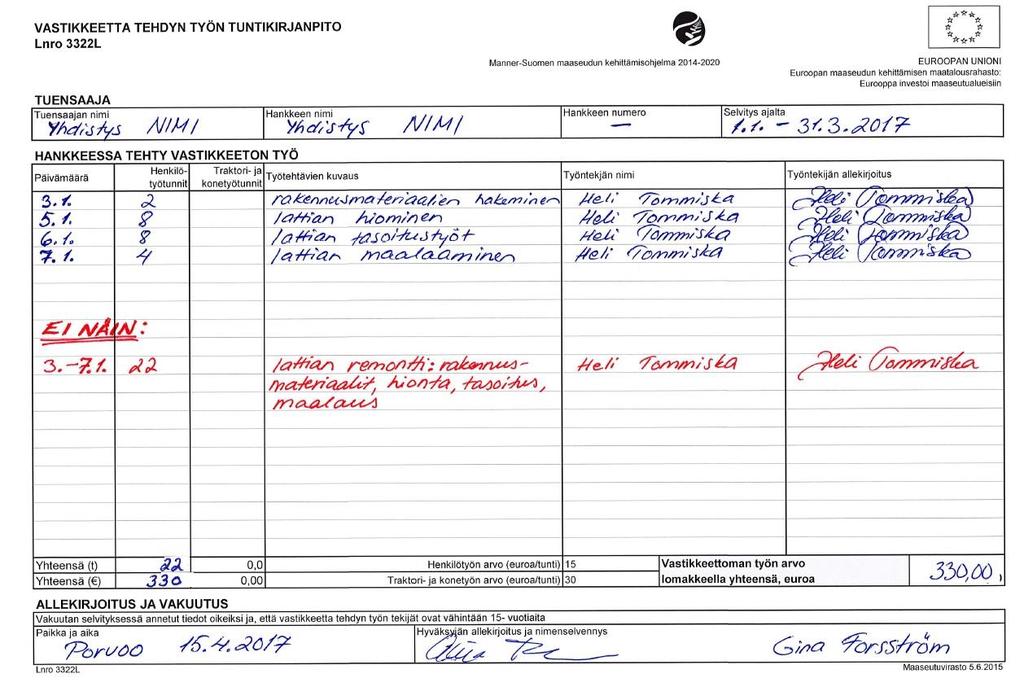 VASTIKKEETTA TEHDYN TYÖN TUNTIKIRJANPITO
Lnro 3322L
Manner-Suomen maaseudun kehittämisohjelma 2014-2020
EUROOPAN UNIONI
Euroopan maaseudun kehittämisen maatalousrahasto:
Eurooppa investoi maaseutualueisiin
TUENSAAJA
Tuensaajan nimi Hankkeen nimi Hankkeen numero Selvitys ajalta
Yhdistys NIMI Yhdistys NIMI — 1.1. - 31.3.2017
HANKKEESSA TEHTY VASTIKKEETON TYÖ
Päivämäärä Henkilö-työtunnit Traktori- ja konetyötunnit Työtehtävien kuvaus Työntekjän nimi Työntekijän allekirjoitus
3.1. 2 rakennusmateriaalien hakeminen Heli Tommiska Heli Tommiska
5.1. 8 lattian hiominen Heli Tommiska Heli Tommiska
6.1. 8 lattian tasoitustyöt Heli Tommiska Heli Tommiska
7.1. 4 lattian maalaaminen Heli Tommiska Heli Tommiska
EI NÄIN:
3.-7.1. 22 lattian remontti: rakennus- Heli Tommiska Heli Tommiska
materiaalit, hionta, tasoitus,
maalaus
Yhteensä (t) 22 0,0 Henkilötyön arvo (euroa/tunti) 15 Vastikkeettoman työn arvo
Yhteensä (€) 330 0,00 Traktori- ja konetyön arvo (euroa/tunti) 30 lomakkeella yhteensä, euroa 330,00
ALLEKIRJOITUS JA VAKUUTUS
Vakuutan selvityksessä annetut tiedot oikeiksi ja, että vastikkeetta tehdyn työn tekijät ovat vähintään 15- vuotiaita
Paikka ja aika Hyväksyjän allekirjoitus ja nimenselvennys
Porvoo 15.4.2017 Gina Forsström
Lnro 3322L Maaseutuvirasto 5.6.2015